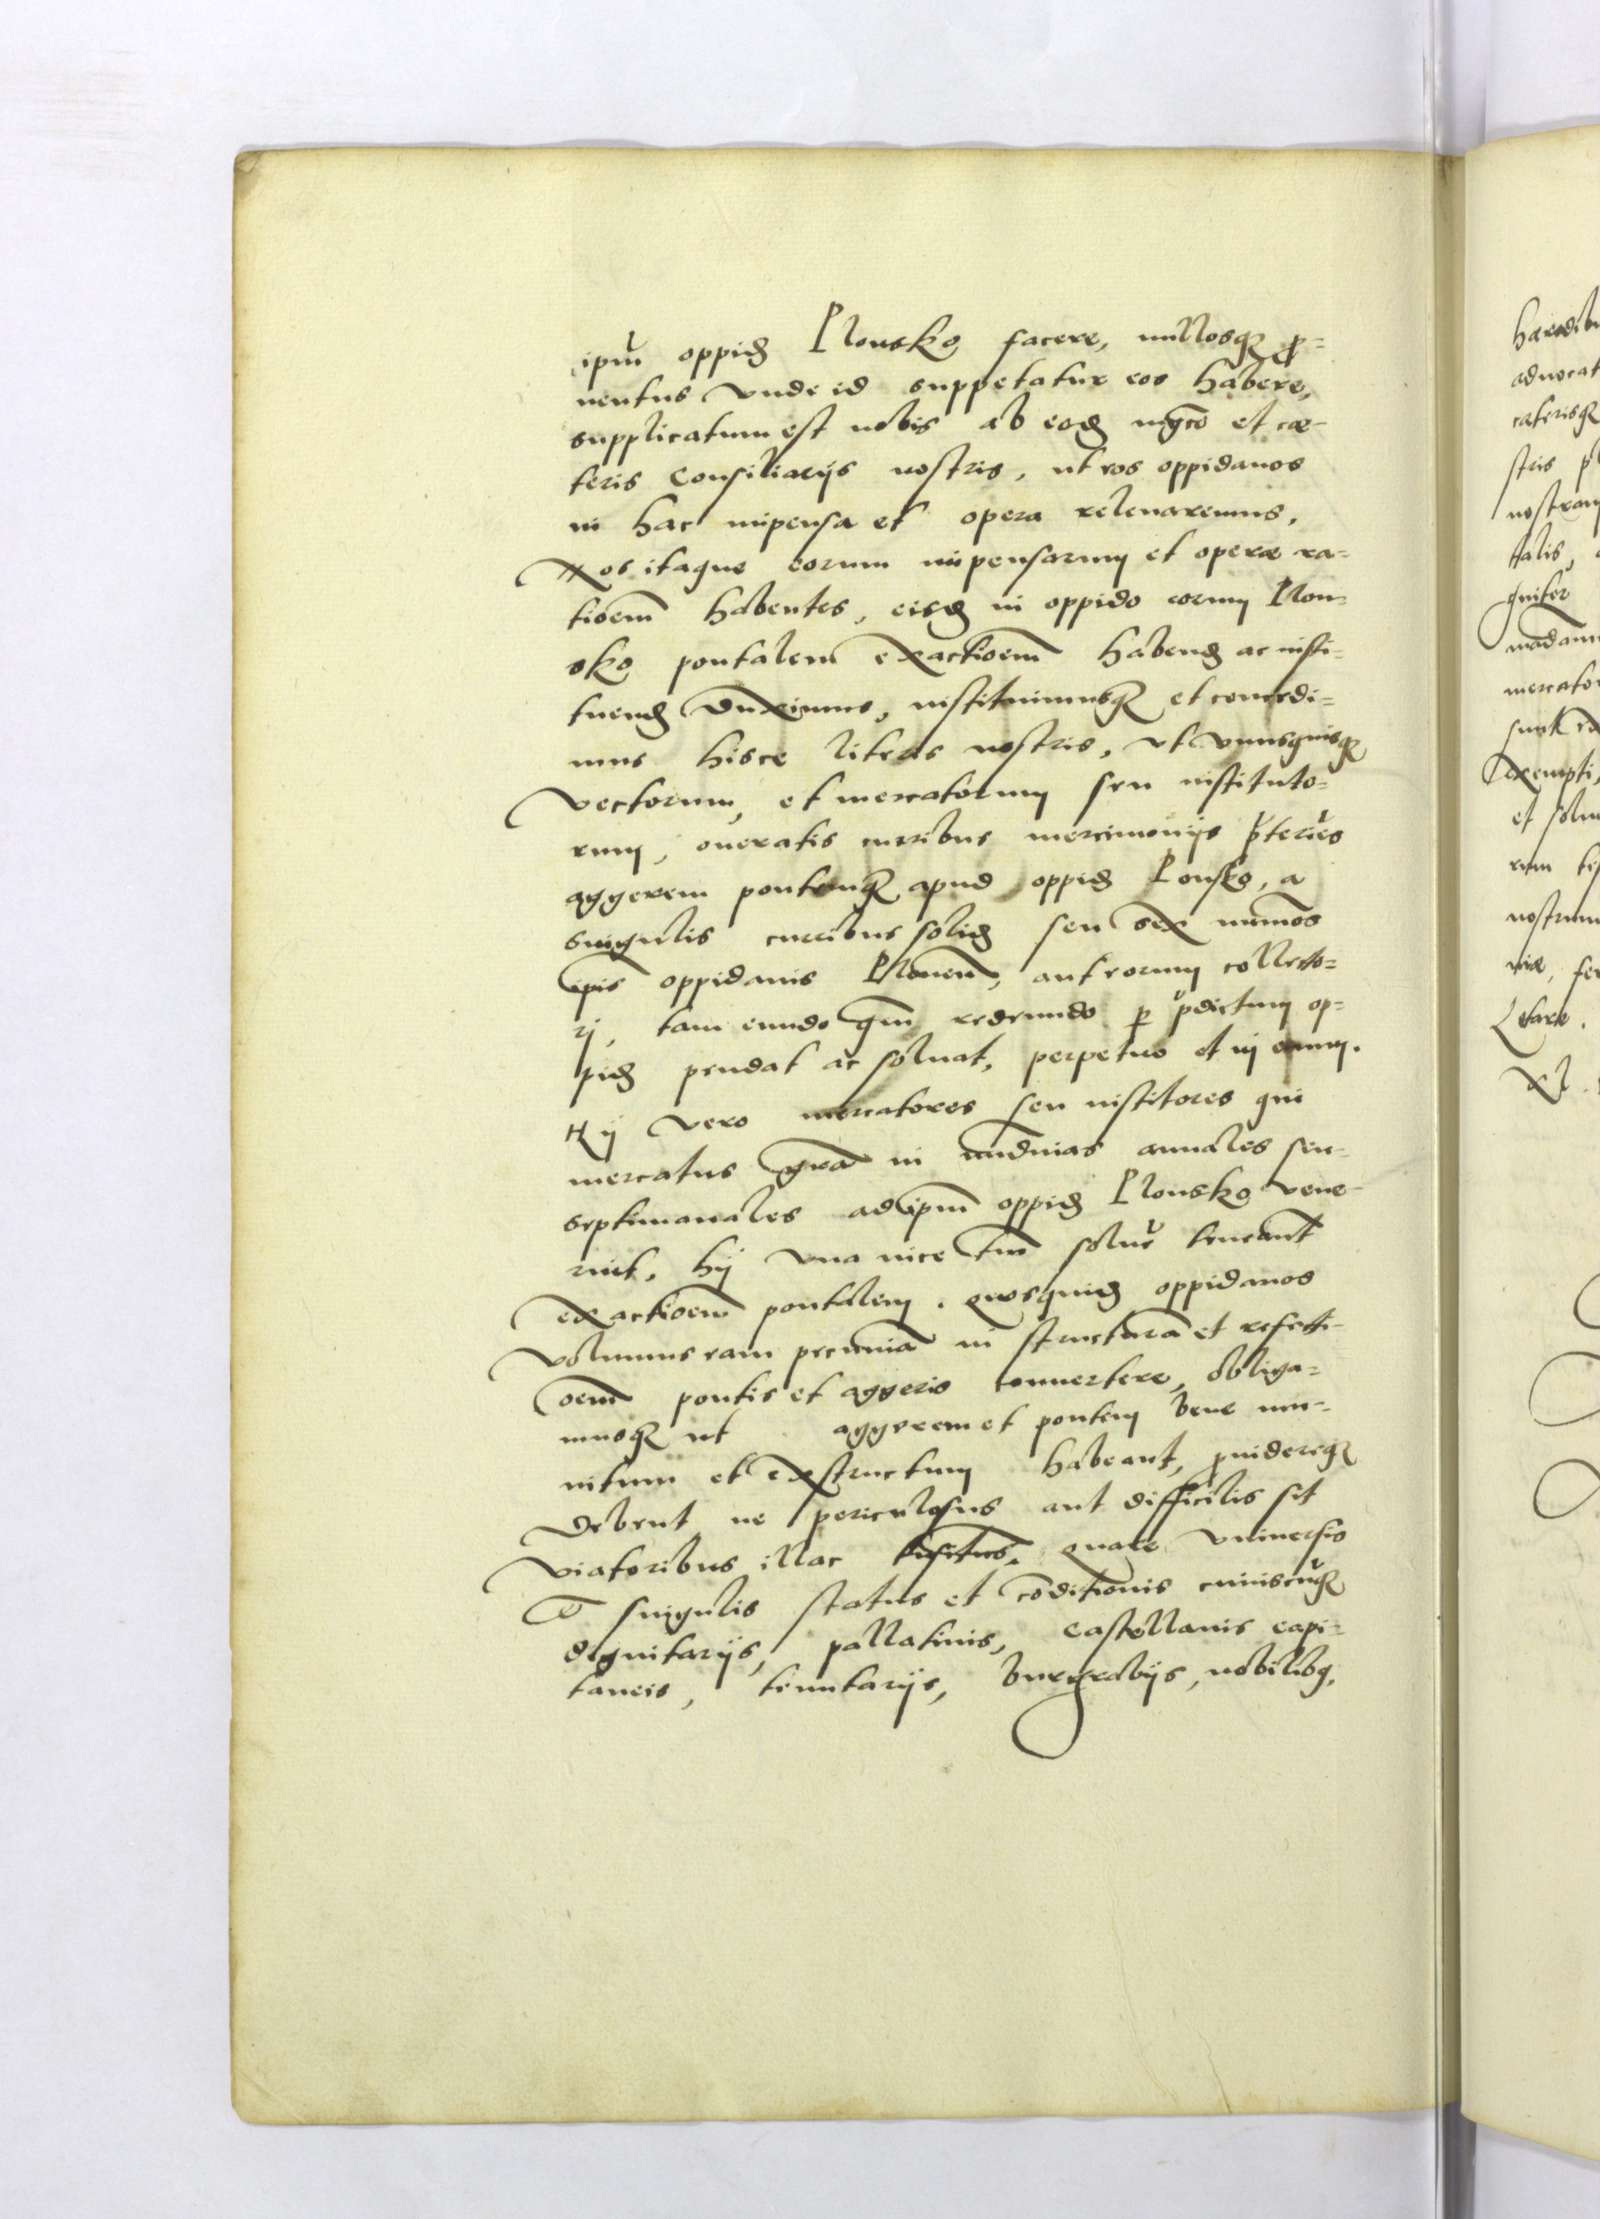 ipm̄ oppid Plonsko facere, nullosq pro=
uentus vnde id suppetatur eos habere,
supplicatum est nobis ab eod mgco et cæ-
teris Consiliarijs nostris, ut eos oppidanos
in hac impensa et opera releuaremus.
Nos itaque eorum impensarum et operæ ra-
tioem habentes, eisd in oppido eorum Plon-
sko pontalem exactioem habend ac insti-
tuend duximus, instituimusq et concedi=
mus hisce literis nostris, vt vnusquisq
vectorum, et mercatorum seu instituto=
rum, oneratis curribus mercimonijs pteries
aggerem pontemq apud oppid Plonsko, a
singulis curribus solid seu sex numos
ipis oppidanis Plonen, aut eorum collecto=
ri, tam eundo qm redeundo p pdictum op-
pid pendat ac soluat, perpetuo et in euum.
Hij vero mercatores seu institores qui
mercatus gra in nundinas annales seu-
septimanales ad ipm oppid Plonsko vene-
rint, hij vna vice tm soluer teneant
exactioem pontalem. quosquid oppidanos
volumus eam pecunia in structura et refecti-
oem pontis et aggeris conuertere, obliga=
musq ut aggerem et pontem bene mu-
nitum et exstructum habeant, prouidereq
debent ne periculosus aut difficilis sit
viatoribus illac transitus. quare vniuersis
et singulis status et coditionis cuiuscuq
dignitarijs, pallatinis, castellanis capi-
taneis, tenutarijs, burgrabijs, nobilibq,
haredib
aduocat
caterisq
stris
nostram
talis,
gniter
madam
mercator
sunt
exempti,
et solu
rum
nostrum